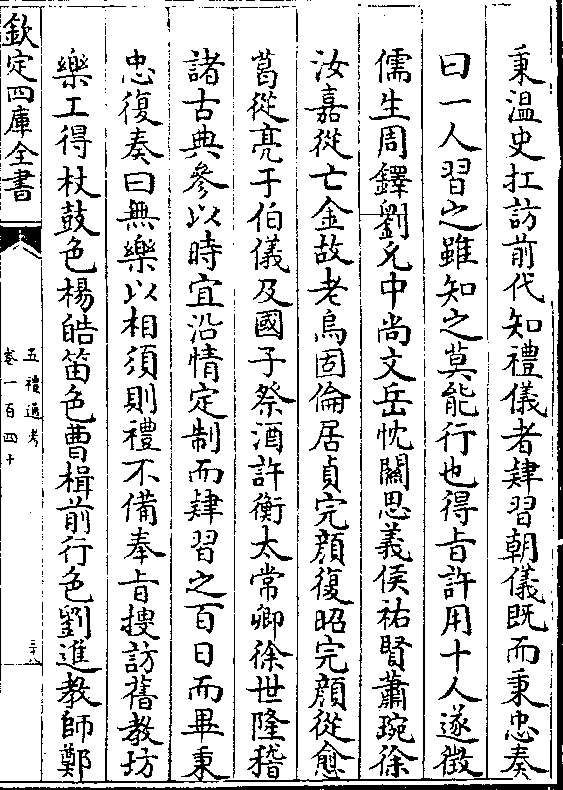 秉温史扛訪前代知禮儀者肄習朝儀既而秉忠奏
曰一人習之雖知之莫能行也得旨許用十人遂徴
儒生周鐸劉允中尚文岳忱闗思義侯祐賢蕭琬徐
汝嘉從亡金故老烏固倫居貞完顔復昭完顔從愈
葛從亮于伯儀及國子祭酒許衡太常卿徐世隆稽
諸古典參以時宜沿情定制而肄習之百日而畢秉
忠復奏曰無樂以相須則禮不備奉旨搜訪舊教坊
樂工得杖鼓色楊皓笛色曹楫前行色劉進教師鄭
欽定四庫全書
五禮通考
卷一百四十